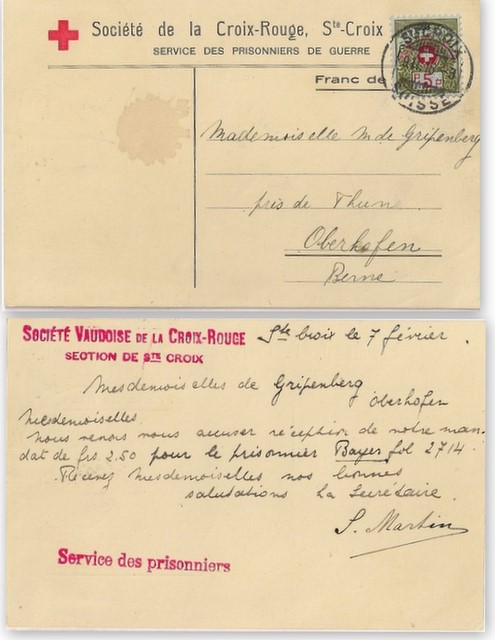 Société de la Croix-Rouge, Ste-Croix
SERVICE DES PRISONNIERS DE GUERRE
Franc de
STE CROIX
SUISSE
5
Mademoiselle M de Gripenberg
près de Thune
Oberhofen
Berne
SOCIÉTÉ VAUDOISE DE LA CROIX-ROUGE
SECTION DE STE CROIX
Ste Croix le 7 février.
Mesdemoiselles de Gripenberg
Oberhofen
Mesdemoiselles
Nous venons vous accuser réception de notre man-
dat de frs 2.50 pour le prisonnier Bayer fol 2714.
Recevez Mesdemoiselles nos bonnes
salutations La Secrétaire.
S. Martin
Service des prisonniers